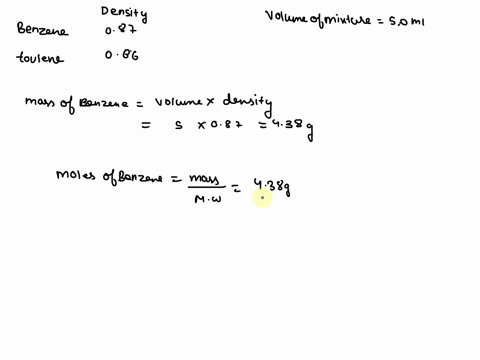 Density
Benzene 0.87
toulene 0.86
Volume of mixture = 5.0 ml
mass of Benzene = volume x density
= 5 x 0.87 = 4.38 g
moles of Benzene = mass / M.W = 4.38g